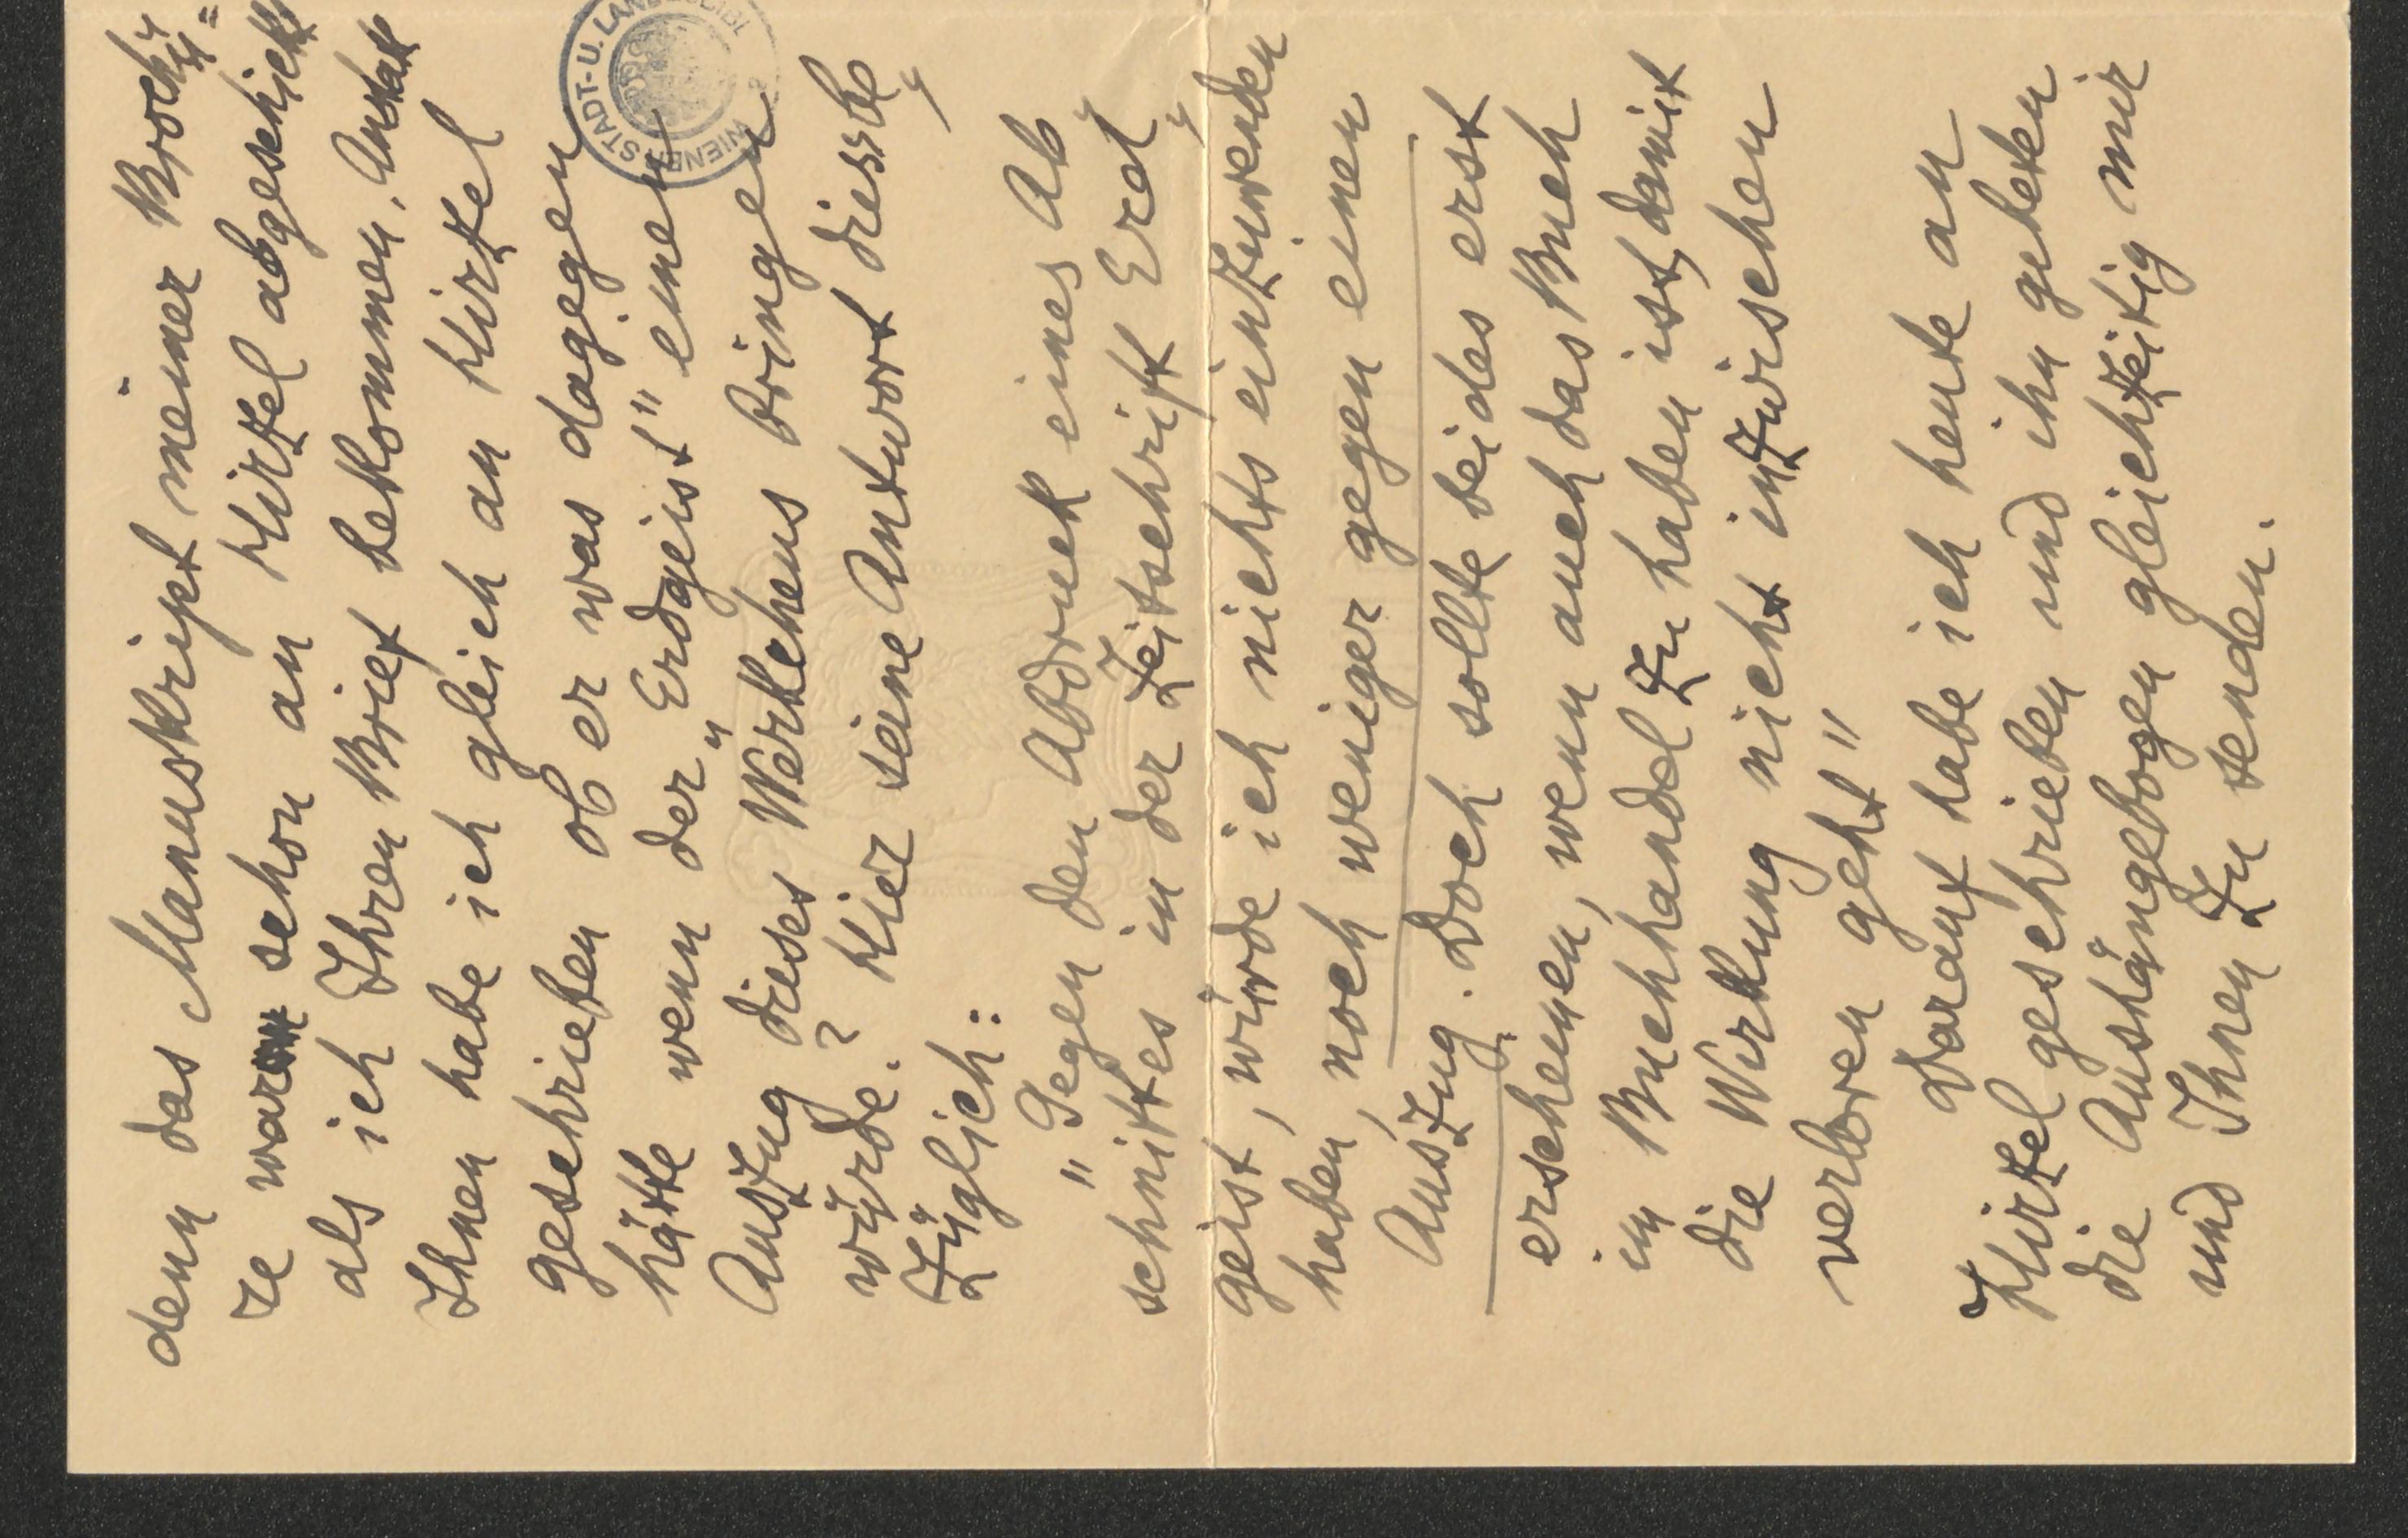 denn das Manuskript meiner Broschü=
re war schon an Hirzel abgeschickt
als ich Ihren Brief bekommen. Anstatt
Ihnen habe ich gleich an Hirzel
geschrieben ob er was dagegen
hätte wenn der „Erdgeist" einen
Auszug dieses Werkchens bringen
würde? Hier seine Antwort diesbe=
züglich:
„Gegen den Abdruck eines Ab=
schnittes in der Zeitschrift Erd=
geist, würde ich nichts einzuwenden
haben, noch weniger gegen einen
Auszug. Doch sollte beides erst
erscheinen, wenn auch das Buch
im Buchhandel zu haben ist, damit
die Wirkung nicht inzwischen
verloren geht"
Darauf habe ich heute an
Hirzel geschrieben und ihn gebeten
die Aushängebogen gleichzeitig mir
und Ihnen zu senden.
WIENER STADT-U.